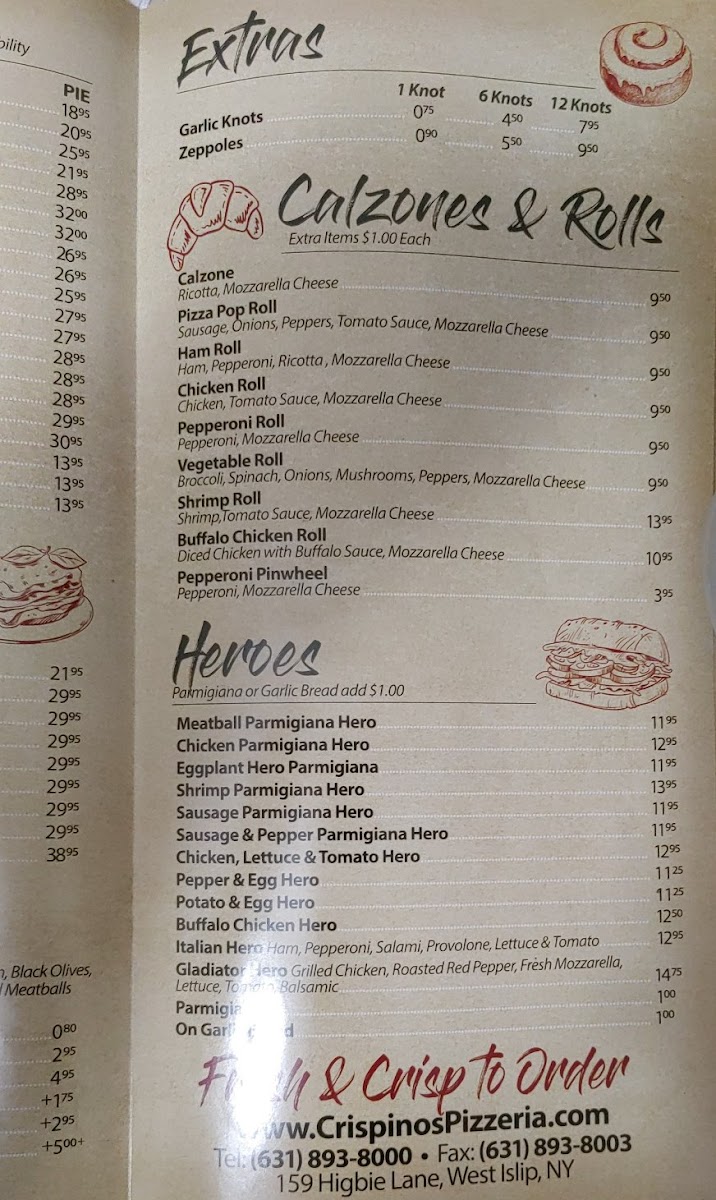 bility
PIE
18⁹⁵
20⁹⁵
25⁹⁵
21⁹⁵
28⁹⁵
32⁰⁰
32⁰⁰
26⁹⁵
26⁹⁵
25⁹⁵
27⁹⁵
27⁹⁵
28⁹⁵
28⁹⁵
28⁹⁵
29⁹⁵
30⁹⁵
13⁹⁵
13⁹⁵
13⁹⁵
21⁹⁵
29⁹⁵
29⁹⁵
29⁹⁵
29⁹⁵
29⁹⁵
29⁹⁵
29⁹⁵
38⁹⁵
Black Olives,
Meatballs
0⁸⁰
2⁹⁵
4⁹⁵
+1⁷⁵
+2⁹⁵
+5⁰⁰⁺
Extras
1 Knot 6 Knots 12 Knots
Garlic Knots 0⁷⁵ 4⁵⁰ 7⁹⁵
Zeppoles 0⁹⁰ 5⁵⁰ 9⁵⁰
Calzones & Rolls
Extra Items $1.00 Each
Calzone
Ricotta, Mozzarella Cheese 9⁵⁰
Pizza Pop Roll
Sausage, Onions, Peppers, Tomato Sauce, Mozzarella Cheese 9⁵⁰
Ham Roll
Ham, Pepperoni, Ricotta , Mozzarella Cheese 9⁵⁰
Chicken Roll
Chicken, Tomato Sauce, Mozzarella Cheese 9⁵⁰
Pepperoni Roll
Pepperoni, Mozzarella Cheese 9⁵⁰
Vegetable Roll
Broccoli, Spinach, Onions, Mushrooms, Peppers, Mozzarella Cheese 9⁵⁰
Shrimp Roll
Shrimp,Tomato Sauce, Mozzarella Cheese 13⁹⁵
Buffalo Chicken Roll
Diced Chicken with Buffalo Sauce, Mozzarella Cheese 10⁹⁵
Pepperoni Pinwheel
Pepperoni, Mozzarella Cheese 3⁹⁵
Heroes
Parmigiana or Garlic Bread add $1.00
Meatball Parmigiana Hero 11⁹⁵
Chicken Parmigiana Hero 12⁹⁵
Eggplant Hero Parmigiana 11⁹⁵
Shrimp Parmigiana Hero 13⁹⁵
Sausage Parmigiana Hero 11⁹⁵
Sausage & Pepper Parmigiana Hero 11⁹⁵
Chicken, Lettuce & Tomato Hero 12⁹⁵
Pepper & Egg Hero 11²⁵
Potato & Egg Hero 11²⁵
Buffalo Chicken Hero 12⁵⁰
Italian Hero Ham, Pepperoni, Salami, Provolone, Lettuce & Tomato 12⁹⁵
Gladiator Hero Grilled Chicken, Roasted Red Pepper, Fresh Mozzarella,
Lettuce, Tomato, Balsamic 14⁷⁵
Parmigia 1⁰⁰
On Garl 1⁰⁰
Fresh & Crisp to Order
www.CrispinosPizzeria.com
Tel: (631) 893-8000 • Fax: (631) 893-8003
159 Higbie Lane, West Islip, NY